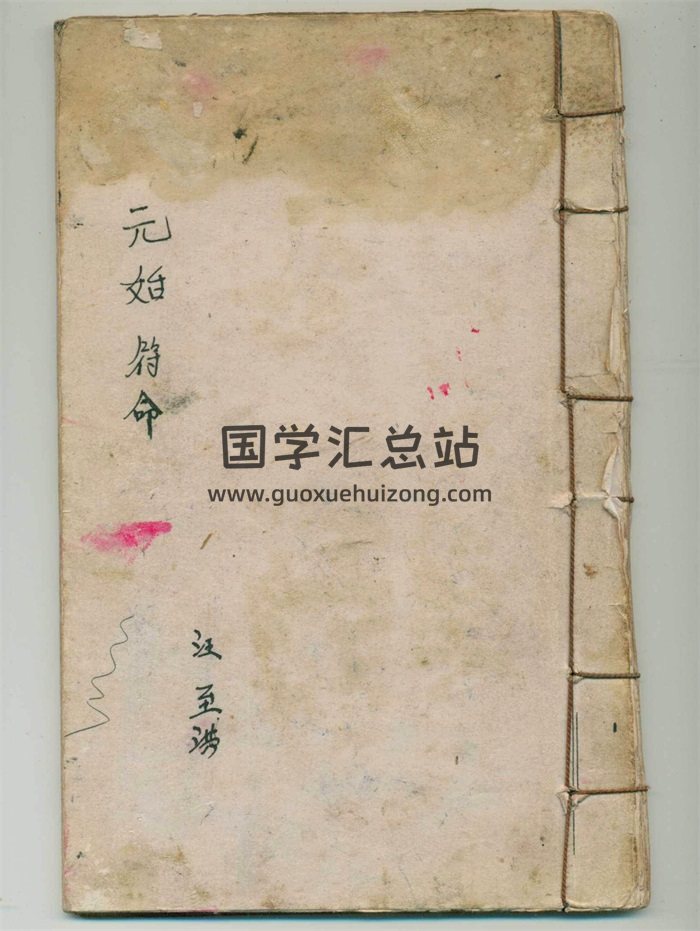 元始符命
汪至洪
国学汇总站
www.guoxuehuizong.com